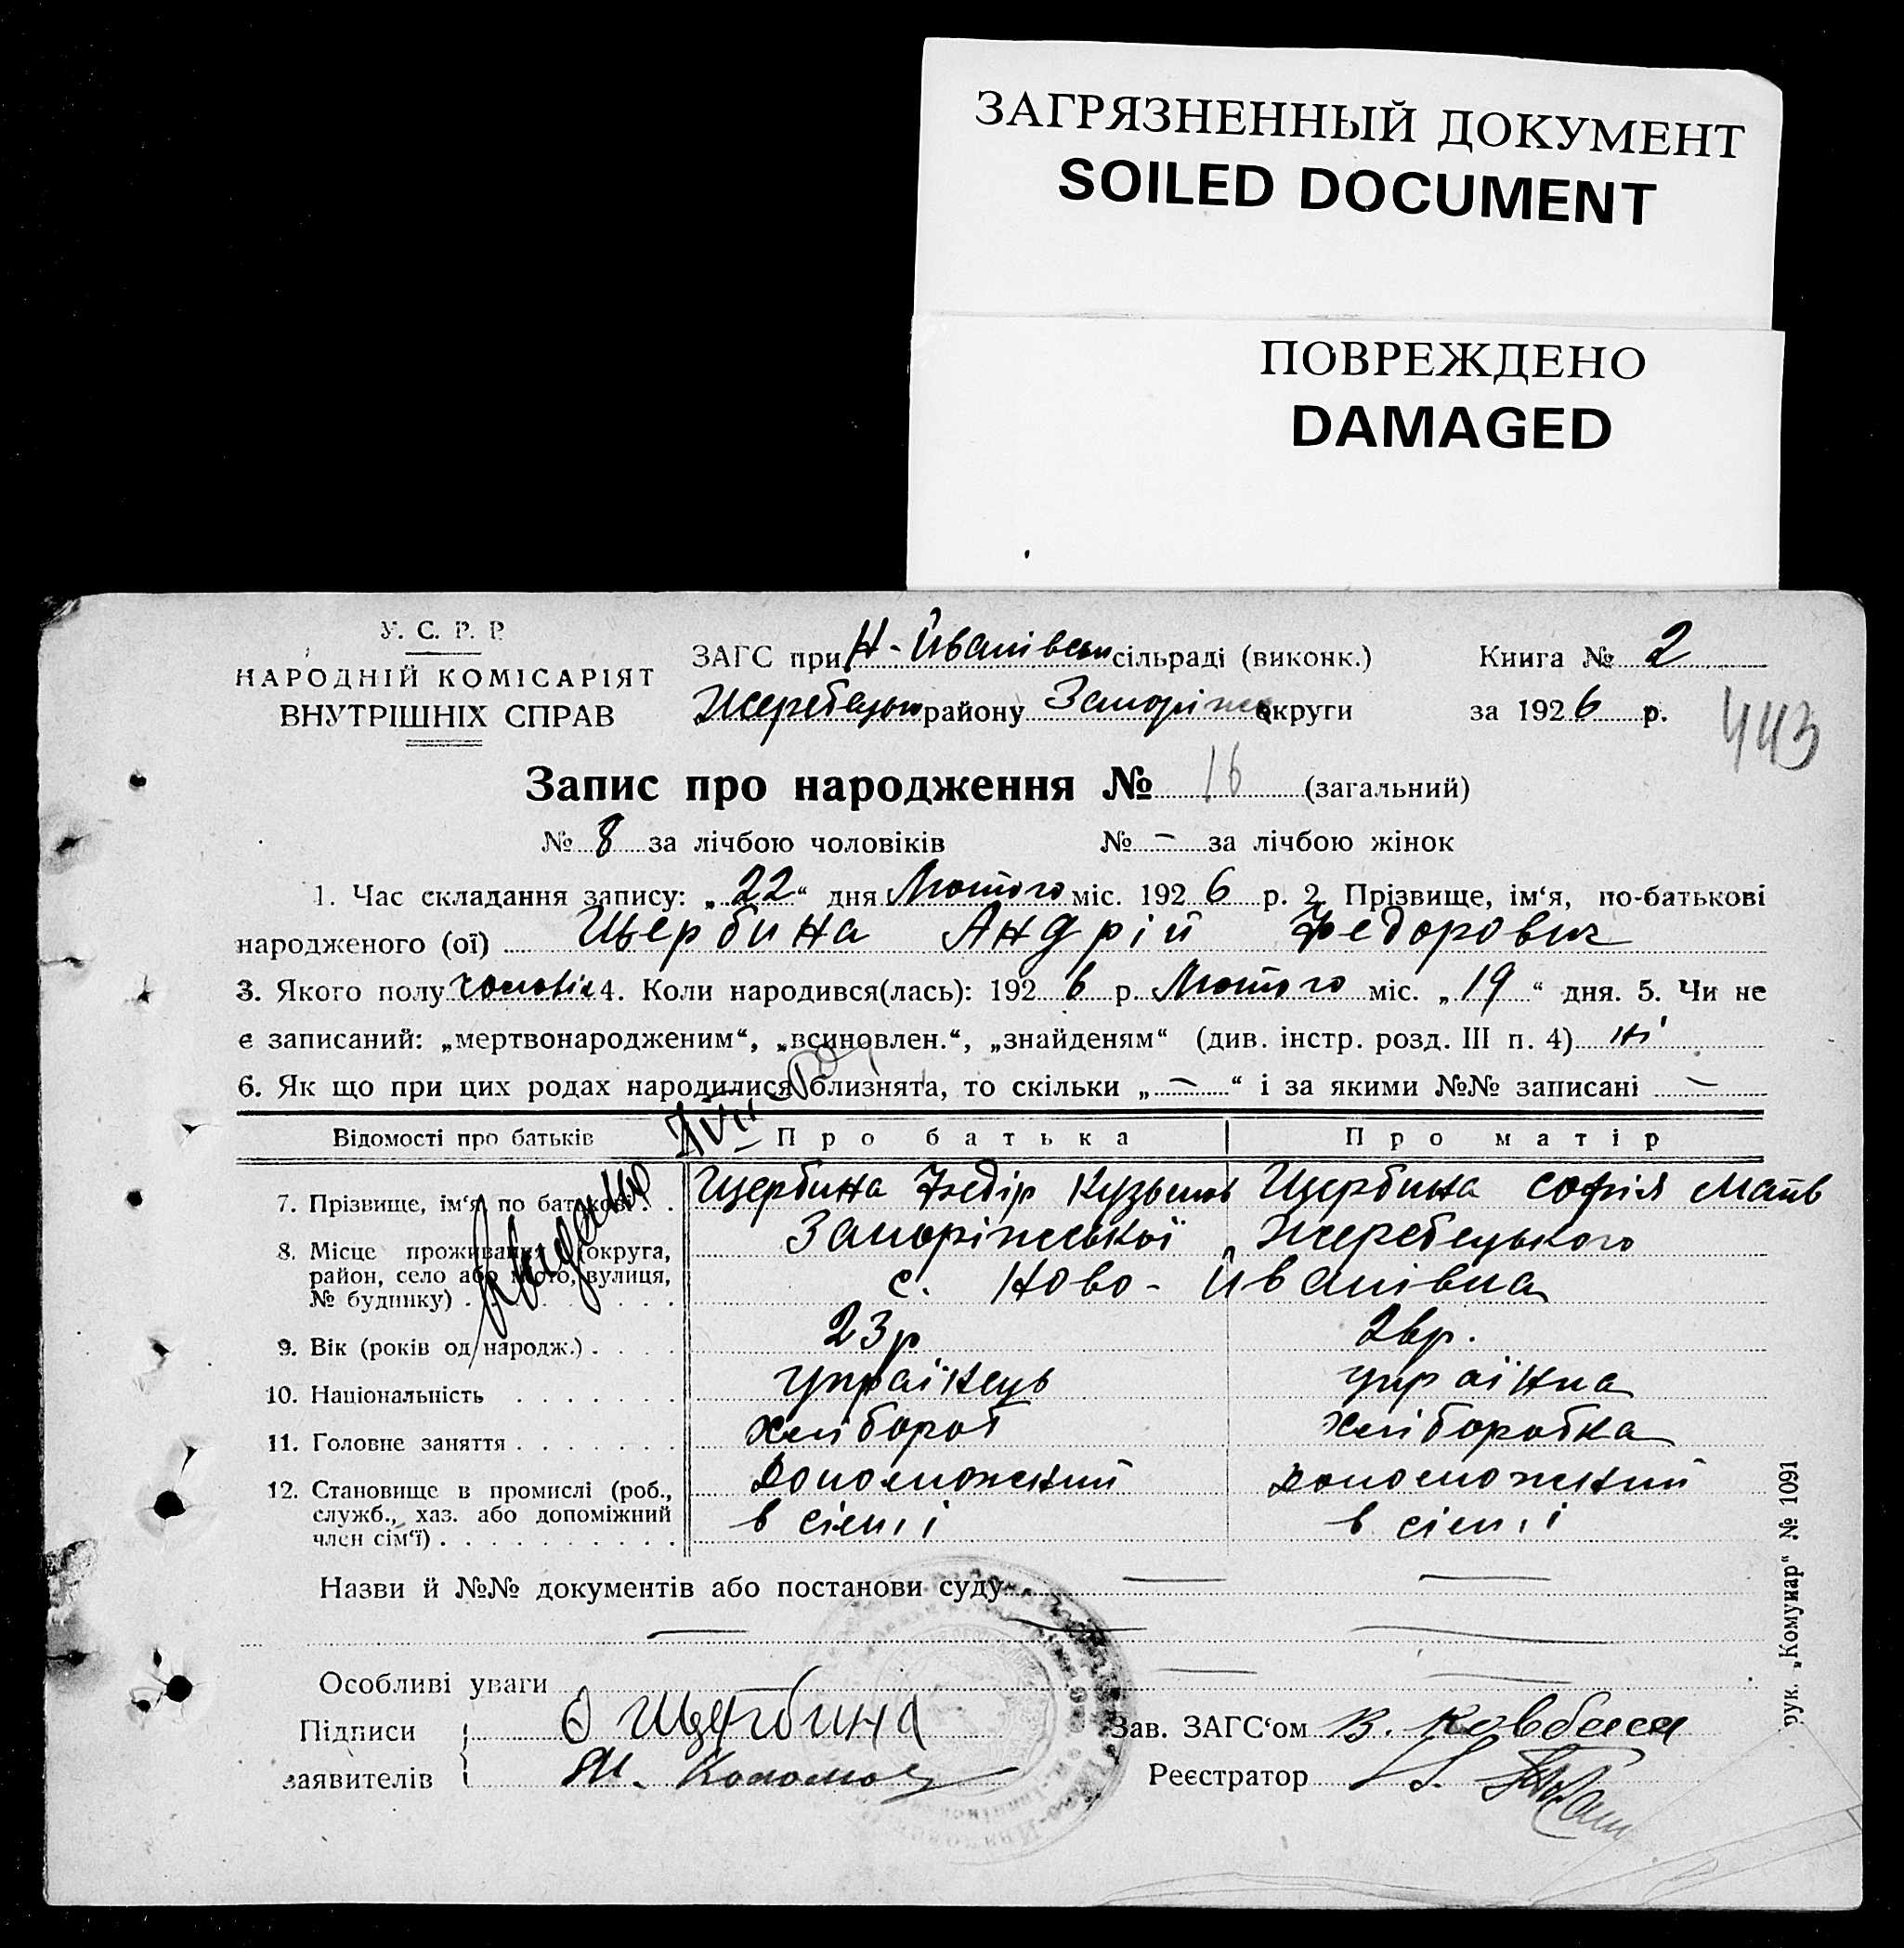 ЗАГРЯЗНЕННЫЙ ДОКУМЕНТ
SOILED DOCUMENT
ПОВРЕЖДЕНО
DAMAGED
У. С. Р. Р
НАРОДНІЙ КОМІСАРІЯТ
ВНУТРІШНІХ СПРАВ
ЗАГС при Н-Йванівськ сільраді (виконк.) Книга № 2
Жеребецьк району Запоріж округи за 1926 р.
443
Запис про народження № 16 (загальний)
№ 8 за лічбою чоловіків № – за лічбою жінок
1. Час складання запису: „22“ дня Лютого міс. 1926 р. 2. Прізвище, ім‘я, по-батькові
народженого (ої) Щербина Андрій Федорович
3. Якого полу чоловік 4. Коли народився(лась): 1926 р. Лютого міс. „19“ дня. 5. Чи не
є записаний: „мертвонародженим“, „всиновлен.“, „знайденям“ (див. інстр. розд. III п. 4) ні
6. Як що при цих родах народилися близнята, то скільки „–“ і за якими №№ записані –
Відомості про батьків Про батька Про матір
7. Прізвище, ім‘я, по батькові . . Щербина Федір Кузьмов Щербина Софія Матв
8. Місце проживання (округа, район, село або місто, вулиця, № будинку) . Запоріжської Жеребецького
с. Ново-Йванівка
9. Вік (років од народж.) . . . . 23р 26р.
10. Національність . . . . . . . українець українка
11. Головне заняття . . . . . . . хлібороб хліборобка
12. Становище в промислі (роб., служб., хаз. або допоміжний член сім‘ї) . . . . . . . . . . допоможний допоможний
в сімї в сімї
Назви й №№ документів або постанови суду
Особливі уваги
Підписи Щербина Зав. ЗАГС‘ом В. Ковбаса
заявителів Реєстратор
рук. „Комунар“ № 1091